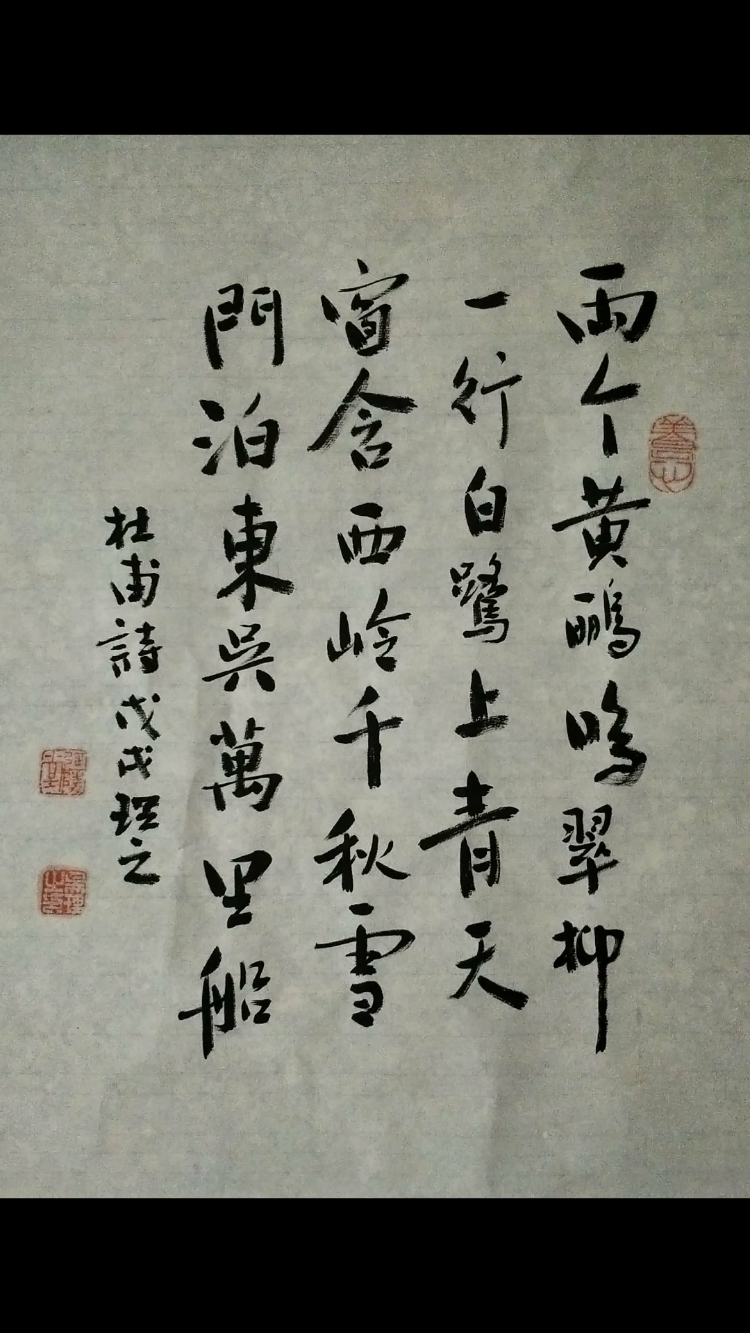 两个黄鹂鸣翠柳
一行白鹭上青天
窗含西岭千秋雪
門泊東吳萬里船
杜甫詩戊戌琝之